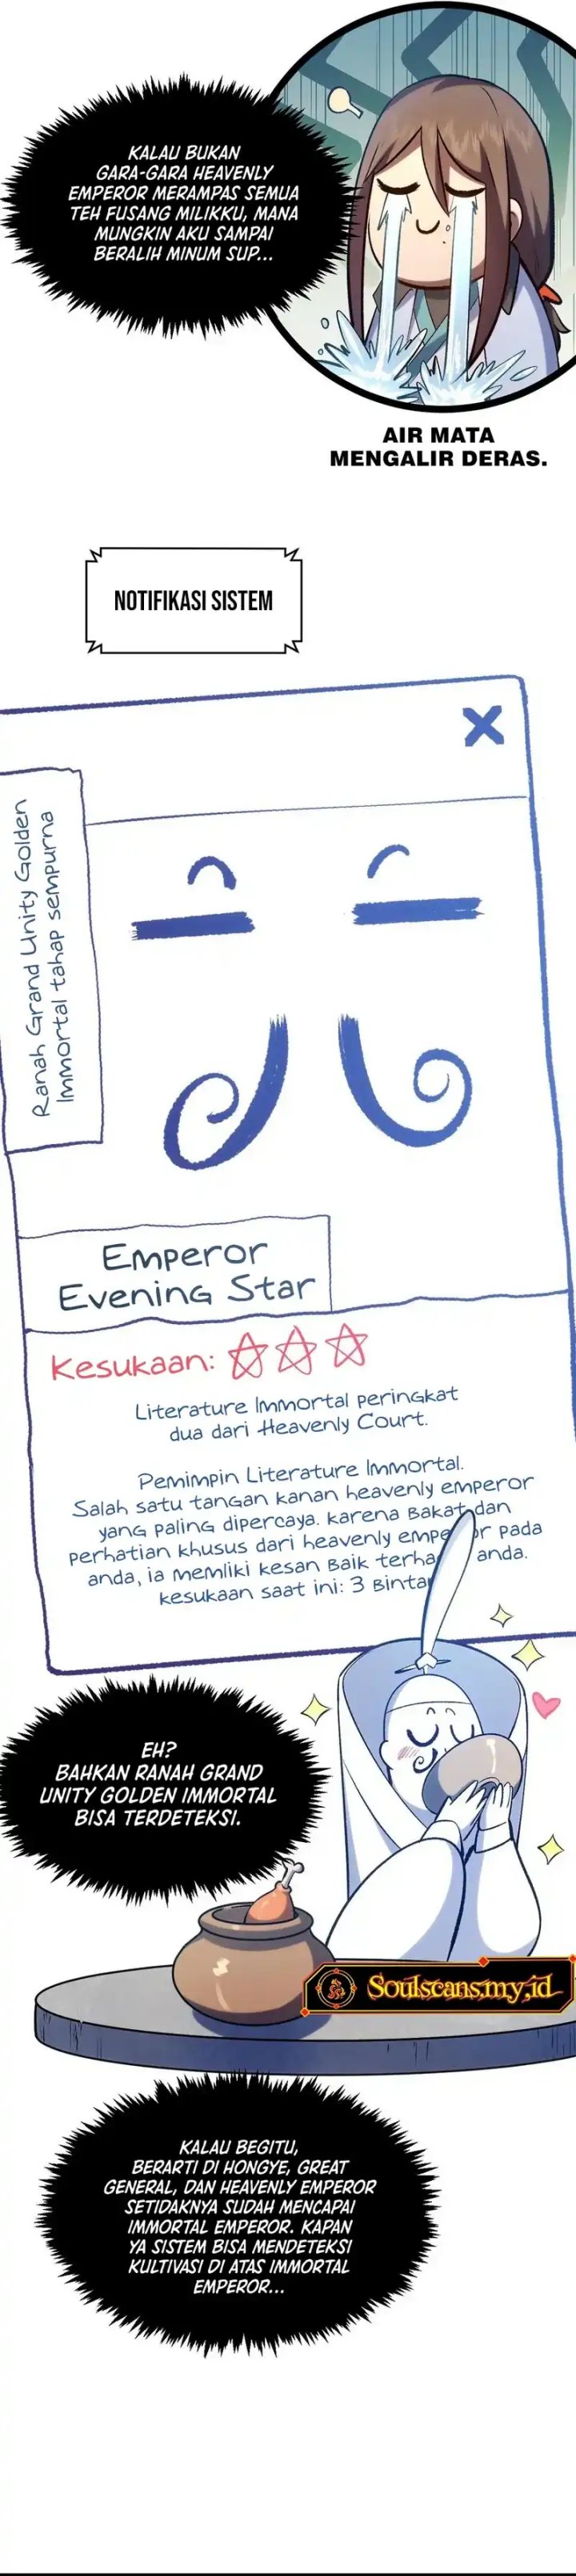 KALAU BUKAN
GARA-GARA HEAVENLY
EMPEROR MERAMPAS SEMUA
TEH FUSANG MILIKKU, MANA
MUNGKIN AKU SAMPAI
BERALIH MINUM SUP...
AIR MATA
MENGALIR DERAS.
NOTIFIKASI SISTEM
Ranah Grand Unity Golden
Immortal tahap sempurna
Emperor
Evening Star
Kesukaan:
Literature Immortal peringkat
dua dari Heavenly Court.
Pemimpin Literature Immortal.
Salah satu tangan kanan heavenly emperor
yang paling dipercaya. karena bakat dan
perhatian khusus dari heavenly pada
anda, ia memliki kesan baik anda.
kesukaan saat ini: 3
EH?
BAHKAN RANAH GRAND
UNITY GOLDEN IMMORTAL
BISA TERDETEKSI.
Soulscans.my.id
KALAU BEGITU,
BERARTI DI HONGYE, GREAT
GENERAL, DAN HEAVENLY EMPEROR
SETIDAKNYA SUDAH MENCAPAI
IMMORTAL EMPEROR. KAPAN
YA SISTEM BISA MENDETEKSI
KULTIVASI DI ATAS IMMORTAL
EMPEROR...